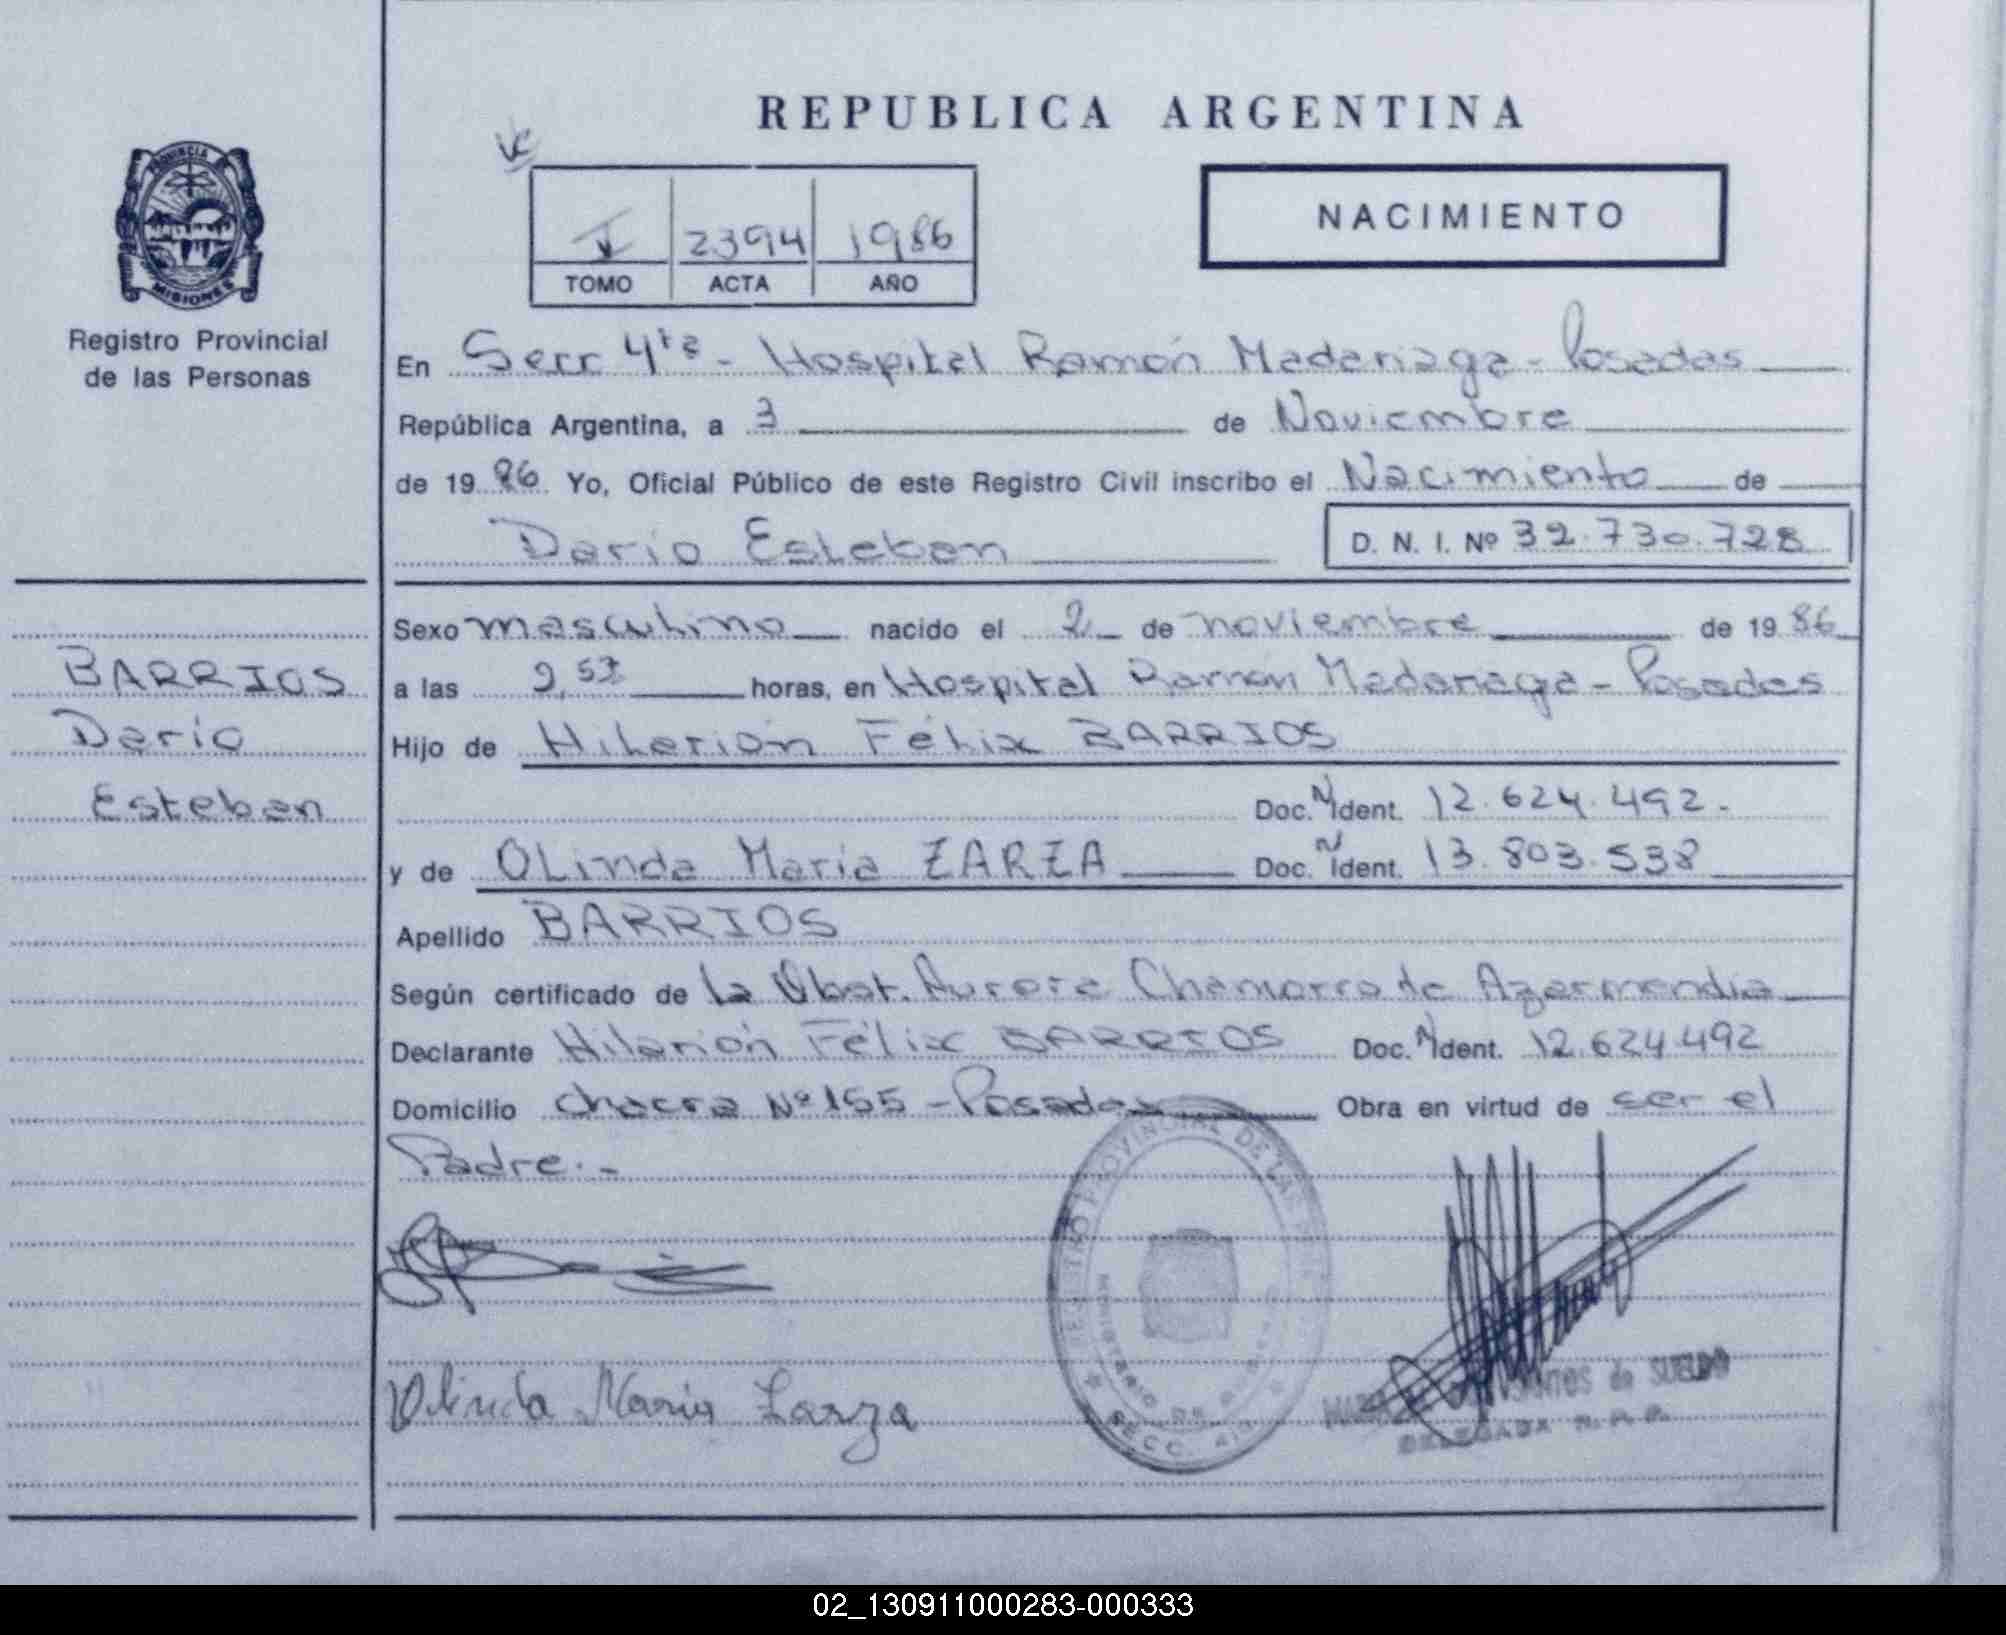 REPUBLICA ARGENTINA
PROVINCIA DE
MISIONES
Registro Provincial
de las Personas
NACIMIENTO
I 2394 1986
TOMO ACTA AÑO
En Secc 4ta - Hospital Ramón Madariaga - Posadas
República Argentina, a 3 de Noviembre
de 19 86 Yo, Oficial Público de este Registro Civil inscribo el Nacimiento de
Dario Esteban D. N. I. Nº 32.730.728
BARRIOS
Darío
Esteban
Sexo masculino nacido el 2 de noviembre de 19 86
a las horas, en Hospital Ramón Madariaga - Posadas
Hijo de Hilarión Félix BARRIOS
Doc. N Ident. 12.624.492.
y de OLinda Maria ZARZA Doc. N Ident. 13.803.538
Apellido BARRIOS
Según certificado de la Obst. Aurora Chamorro de Azarmendia
Declarante Hilarión Félix BARRIOS Doc. N Ident. 12.624.492
Domicilio chacra Nº 155 - Posadas Obra en virtud de ser el
Padre.-
REGISTRO PROVINCIAL DE LAS
MINISTERIO DE
SECC. 4ta
Olinda Maria Zarza
de SUELDO
DELEGADA R. P. P.
02_130911000283-000333